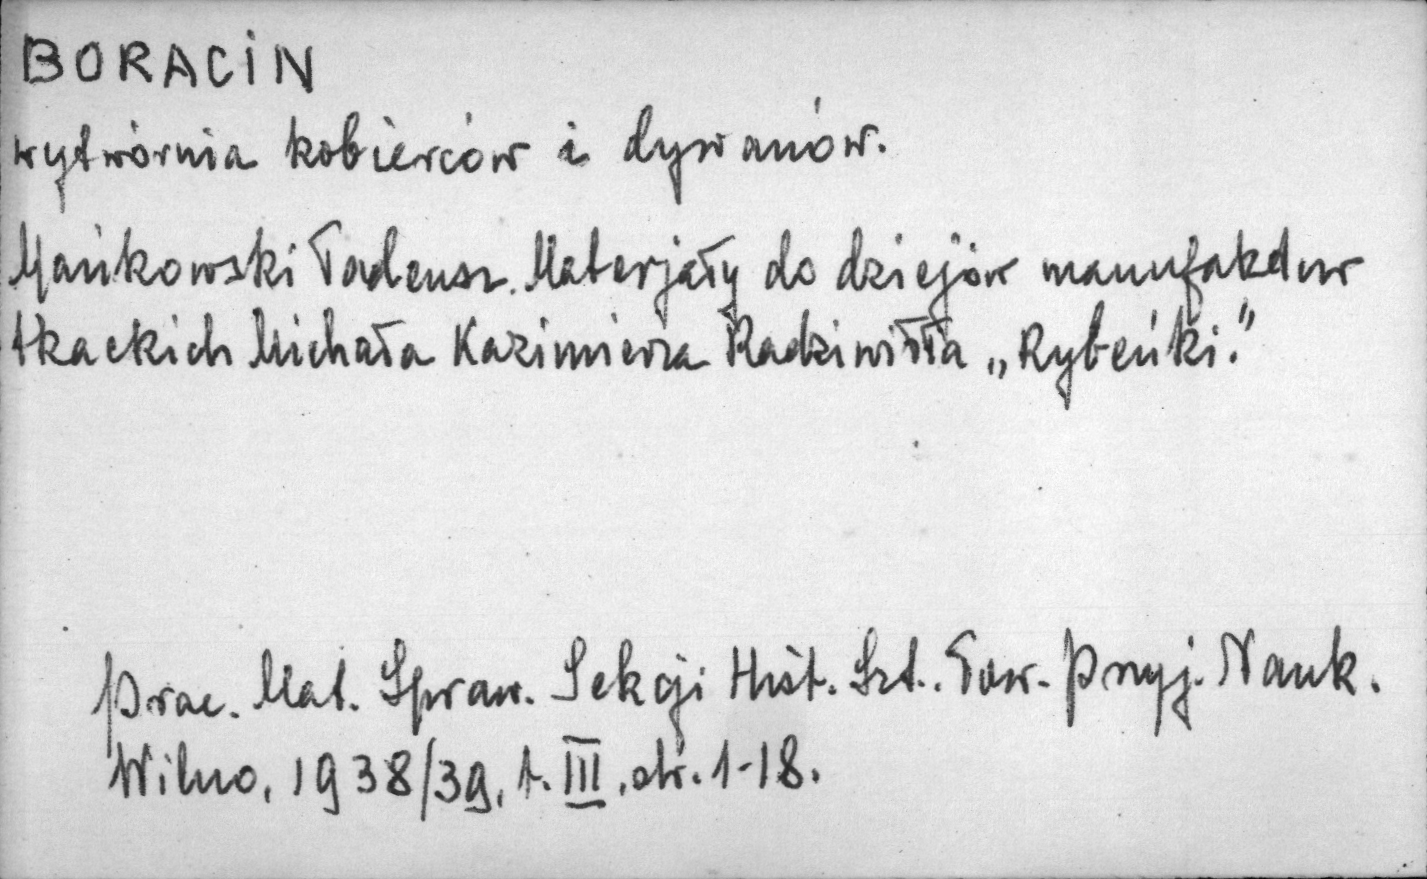 BORACIN
wytwórnia kobierców i dywanów.
Mańkowski Tadeusz. Materjały do dziejów manufaktur
tkackich Michała Kazimierza Radziwiłła „Rybeńki."
Prac. Mat. Spraw. Sekcji Hist. Szt. Tow. Przyj. Nauk.
Wilno, 1938/39, t. III, str. 1-18.